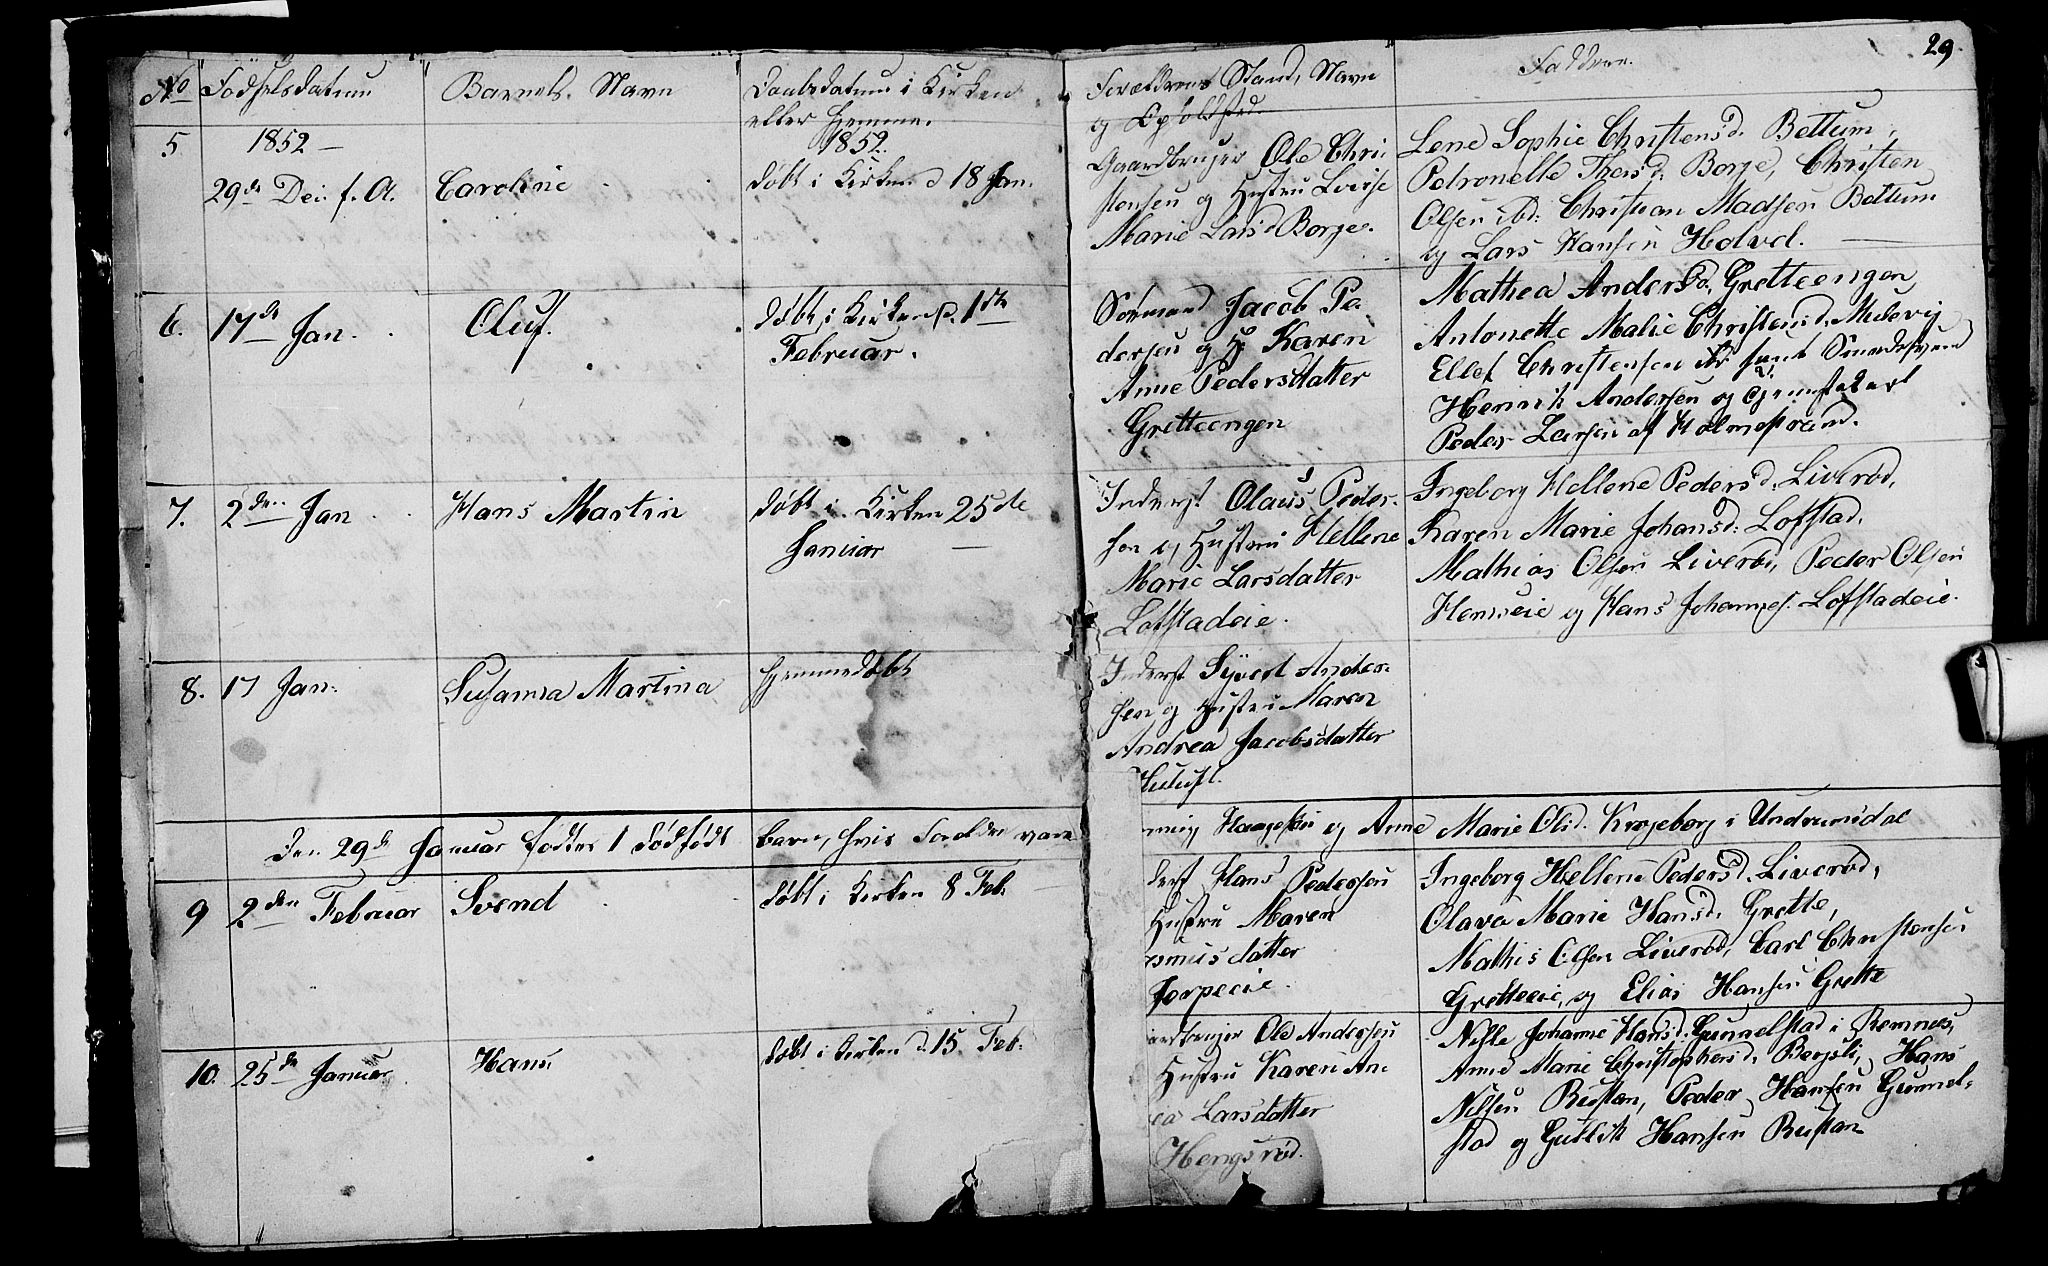 29.
No
Fødselsdatum
Barnets Navn
Daabsdatum i Kirken
eller hjemme.
Forældrenes Stand, Navn
og Opholdsted.
Faddere.
5
1852 –
29de Dec: f. A.
Caroline
1852.
døbt i Kirken d 18 Jan.
Gaardbruger Ole Chri
stensen og Hustru Lovise
Marie Larsd Borge.
Lene Sophie Christensd. Bettum,
Petronelle Thersd. Borge, Christen
Olsen ibd: Christian Madsen Bettum
og Lars Hansen Holvel.
6.
17de Jan.
Oluf.
døbt i Kirken d. 1ste
Februar.
Sømand Jacob Pe
dersen og H. Karen
Anne Pedersdatter
Gretteengen
Mathea Andersd. Gretteengen
Antonette Malie Christensd. Mulevig
Ellef Christensen ibd. samt Smedesvend
Henrik Andersen og
Peder Larsen af Holmestrand.
7.
2den Jan
Hans Martin
døbt i Kirken 25de
Januar
Inderst Olaus Peder-
sen og Hustru Hellene
Marie Larsdatter
Lofstadeie.
Ingeborg Hellene Pedersd. Liverød,
Karen Marie Johansd: Lofstad,
Mathias Olsen Liverød, Peder Olsen
Hemseie og Hans Johannes. Lofstadeie.
8.
17 Jan:
Susanna Martina
hjemmedøbt
Inderst Syvert Ander-
sen og Hustru Maren
Andrea Jacobsdatter
Den 29de Januar fødtes 1 dødfødt barn, hvis Forældre vare
og Anne Marie Olsd. Krogeborg i Undrumsdal
9
2den Februar
Svend
døbt i Kirken 8 Feb.
derst Hans Pedersen
Hustru Maren
smusdatter
Jorpeeie.
Ingeborg Hellene Pedersd. Liverød,
Olava Marie Hansd. Grette,
Mathis Olsen Liverød, Carl Christensen
Gretteeie, og Elias Hansen Grette
10.
25de Januar
Hans
døbt i Kirken d. 15 Feb.
ardbruger Ole Andersen
Hustru Karen An-
ea Larsdatter
Hengsrød.
Nille Johanne Hansd. Gunnelstad i Ramnes,
Anne Marie Christophersd. Bergsli, Hans
Nilsen Rustan, Peder Hansen Gunnel-
stad og Gullik Hansen Rustan